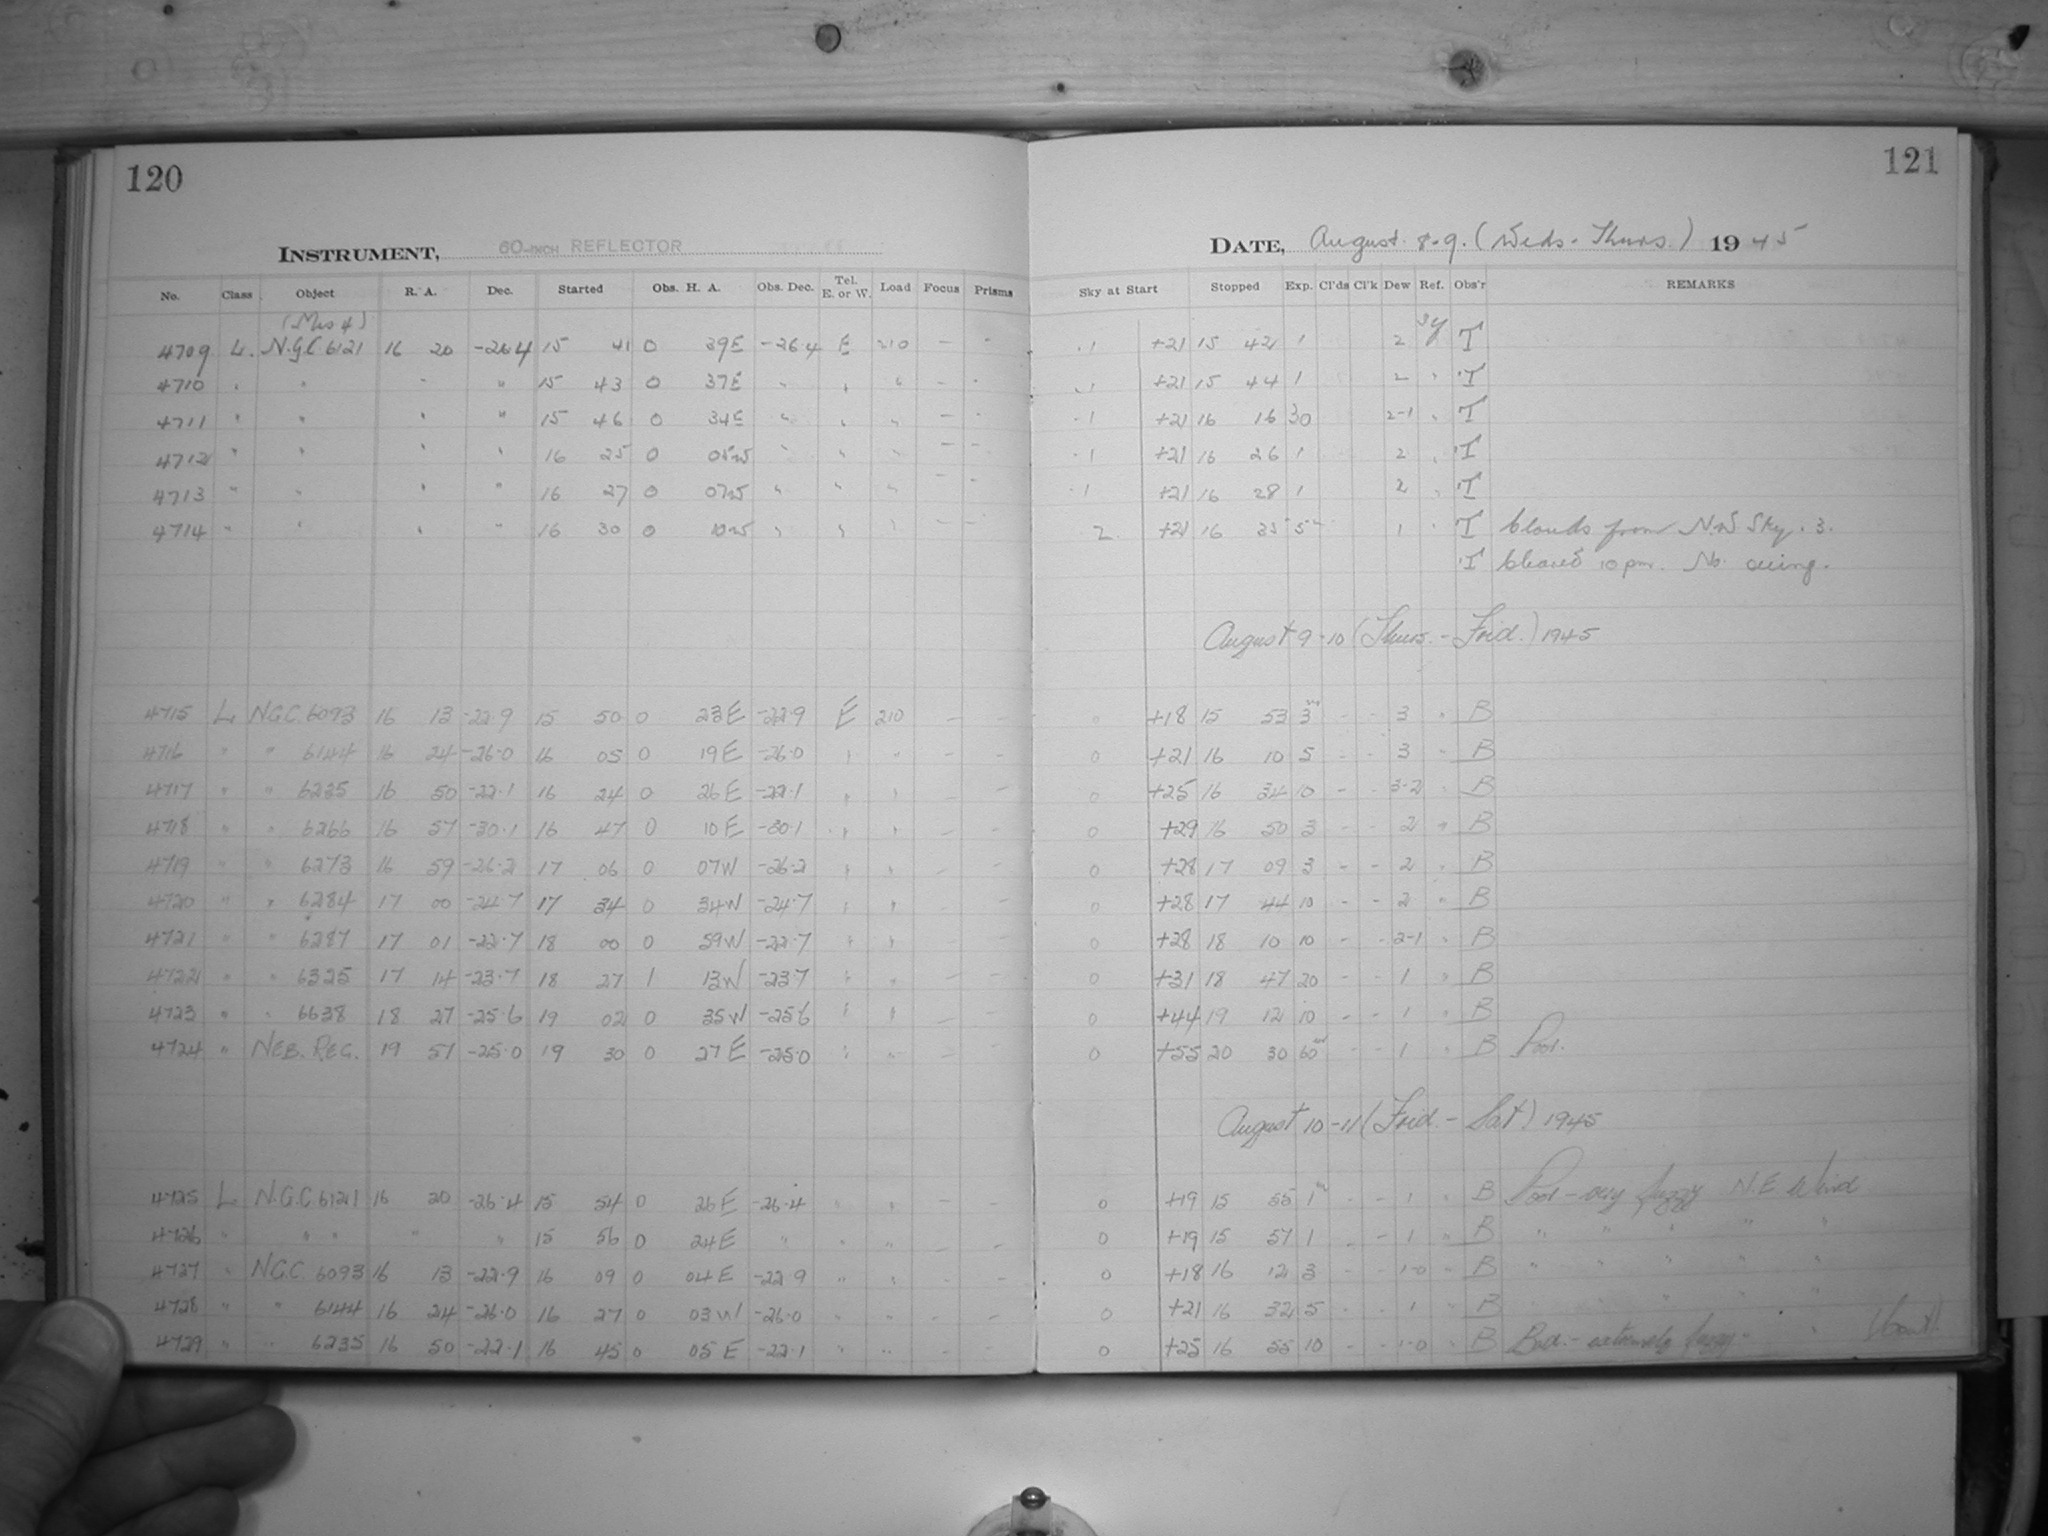 120
INSTRUMENT, 60-INCH REFLECTOR
No. Class Object R. A. Dec. Started Obs. H. A. Obs. Dec. Tel. E. or W. Load Focus Prisms
4709 L. N.G.C 6121 16 20 -26.4 15 41 0 39E -26.4 E 210 -
4710 " " " " 15 43 0 37E " " " - -
4711 " " " " 15 46 0 34E " " " - -
4712 " " " " 16 25 0 05W " " " - -
4713 " " " " 16 27 0 07W " " " - -
4714 " " " " 16 30 0 10W " " " - -
4715 L NGC. 6093 16 13 -22.9 15 50 0 23E -22.9 E 210 - -
4716 " " 6144 16 24 -26.0 16 05 0 19E -26.0 " " - -
4717 " " 6235 16 50 -22.1 16 24 0 26E -22.1 " " - -
4718 " " 6266 16 57 -30.1 16 47 0 10E -30.1 " " - -
4719 " " 6273 16 59 -26.2 17 06 0 07W -26.2 " " - -
4720 " " 6284 17 00 -24.7 17 34 0 34W -24.7 " " - -
4721 " " 6287 17 01 -22.7 18 00 0 59W -22.7 " " - -
4722 " " 6325 17 14 -23.7 18 27 1 13W -23.7 " " - -
4723 " " 6638 18 27 -25.6 19 02 0 35W -25.6 " " - -
4724 " NEB. REG. 19 57 -25.0 19 30 0 27E -25.0 " " - -
4725 L N.G.C 6121 16 20 -26.4 15 54 0 26E -26.4 " " - -
4726 " " " " " 15 56 0 24E " " " - -
4727 " NGC 6093 16 13 -22.9 16 09 0 04E -22.9 " " - -
4728 " " 6144 16 24 -26.0 16 27 0 03W -26.0 " " - -
4729 " " 6235 16 50 -22.1 16 45 0 05E -22.1 " " - -
121
DATE, August 8-9. (Weds - Thurs.) 1945
Sky at Start Stopped Exp. Cl'ds Cl'k Dew Ref. Obs'r REMARKS
.1 +21 15 42 1 2 T
.1 +21 15 44 1 2 " T
.1 +21 16 16 30 2-1 " T
.1 +21 16 26 1 2 " T
.1 +21 16 28 1 2 " T
2 +21 16 35 5 1 " T Clouds from N.W Sky. 3.
T Cleared 10 pm. No seeing.
August 9-10 (Thurs. - Frid.) 1945
0 +18 15 53 3 - - 3 " B
0 +21 16 10 5 - - 3 " B
0 +25 16 34 10 - - 3-2 " B
0 +29 16 50 3 - - 2 " B
0 +28 17 09 3 - - 2 " B
0 +28 17 44 10 - - 2 " B
0 +28 18 10 10 - - 2-1 " B
0 +31 18 47 20 - - 1 " B
0 +44 19 12 10 - - 1 " B
0 +55 20 30 60 - - 1 " B Poor.
August 10-11 (Frid. - Sat) 1945
0 +19 15 55 1 - - 1 " B Poor - very fuzzy N.E Wind
0 +19 15 57 1 - - 1 " B " " " " "
0 +18 16 12 3 - - 1-0 " B " " " " "
0 +21 16 32 5 - - 1 " B " " " "
0 +25 16 55 10 - - 1-0 " B Bad. - extremely fuzzy -